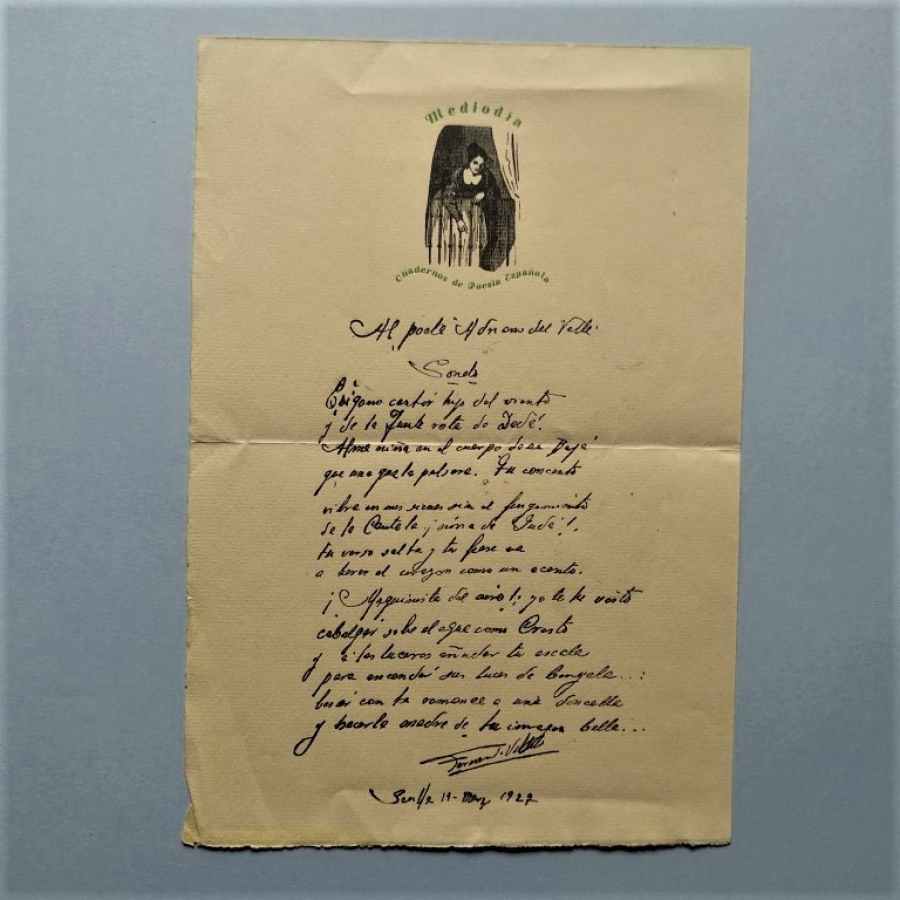 Mediodía
Cuadernos de Poesía Española
Al poeta Adriano del Valle
Soneto
cantor hijo del viento
y de la fuente rota de
Alma niña en el cuerpo de un Bajá
que una gacela pulsara. Tu concento
vibra en mis sienes sin el fingimiento
de la Cautela ¡sierva de Judá!,
tu verso salta y tu frase va
a herir el corazón como un acento.
¡Maquinista del aire!; yo te he visto
cabalgar sobre el agua como Cristo
y a los luceros anudar tu escala
para encender sus luces de bengala...:
besar con tu romance a una doncella
y hacerla madre de tu imagen bella...
Sevilla 19 - Marz 1927